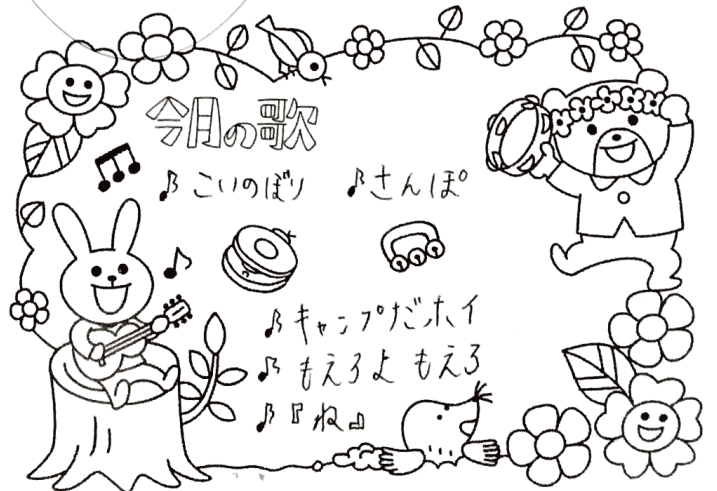 今月の歌
♪こいのぼり ♪さんぽ
♪キャンプだホイ
♪もえろよ もえろ
♪『ね』